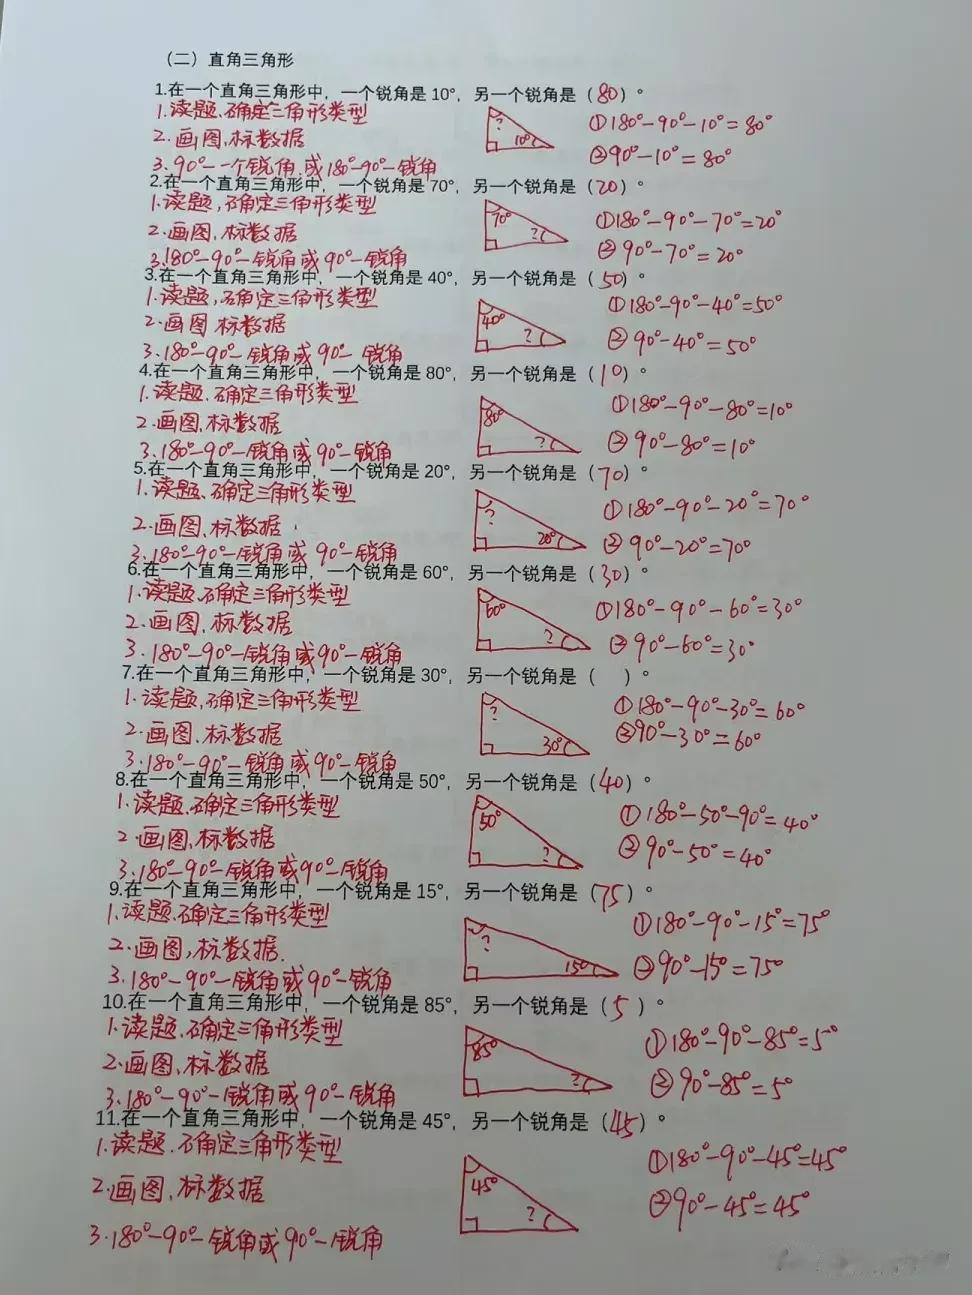 （二）直角三角形
1.在一个直角三角形中，一个锐角是 10°，另一个锐角是（80）°
1.读题、确定三角形类型
2.画图、标数据
3.90°-一个锐角 或180°-90°-锐角
? 10°
①180°-90°-10°=80°
②90°-10°=80°
2.在一个直角三角形中，一个锐角是 70°，另一个锐角是（20）°
1.读题，确定三角形类型
2.画图、标数据
3.180°-90°-锐角或90°-锐角
70° ?
①180°-90°-70°=20°
②90°-70°=20°
3.在一个直角三角形中，一个锐角是 40°，另一个锐角是（50）°
1.读题，确定三角形类型
2.画图 标数据
3.180°-90°-锐角或90°-锐角
40° ?
①180°-90°-40°=50°
②90°-40°=50°
4.在一个直角三角形中，一个锐角是 80°，另一个锐角是（10）°
1.读题、确定三角形类型
2.画图、标数据
3.180°-90°-锐角或90°-锐角
80° ?
①180°-90°-80°=10°
②90°-80°=10°
5.在一个直角三角形中，一个锐角是 20°，另一个锐角是（70）°
1.读题、确定三角形类型
2.画图、标数据
3.180°-90°-锐角或 90°-锐角
? 20°
①180°-90°-20°=70°
②90°-20°=70°
6.在一个直角三角形中，一个锐角是 60°，另一个锐角是（30）°
1.读题、确定三角形类型
2.画图、标数据
3.180°-90°-锐角或90°-锐角
60° ?
①180°-90°-60°=30°
②90°-60°=30°
7.在一个直角三角形中，一个锐角是 30°，另一个锐角是（ ）°
1.读题、确定三角形类型
2.画图、标数据
3.180°-90°-锐角或90°-锐角
? 30°
①180°-90°-30°=60°
②90°-30°=60°
8.在一个直角三角形中，一个锐角是 50°，另一个锐角是（40）°
1.读题、确定三角形类型
2.画图、标数据
3.180°-90°-锐角或90°-锐角
50° ?
①180°-50°-90°=40°
②90°-50°=40°
9.在一个直角三角形中，一个锐角是 15°，另一个锐角是（75）°
1.读题、确定三角形类型
2.画图，标数据.
3.180°-90°-锐角或90°-锐角
? 15°
①180°-90°-15°=75°
②90°-15°=75°
10.在一个直角三角形中，一个锐角是 85°，另一个锐角是（5）°
1.读题、确定三角形类型
2.画图，标数据
3.180°-90°-锐角或 90°-锐角
85° ?
①180°-90°-85°=5°
②90°-85°=5°
11.在一个直角三角形中，一个锐角是 45°，另一个锐角是（45）°
1.读题、确定三角形类型
2.画图，标数据
3.180°-90°-锐角或 90°-锐角
45° ?
①180°-90°-45°=45°
②90°-45°=45°